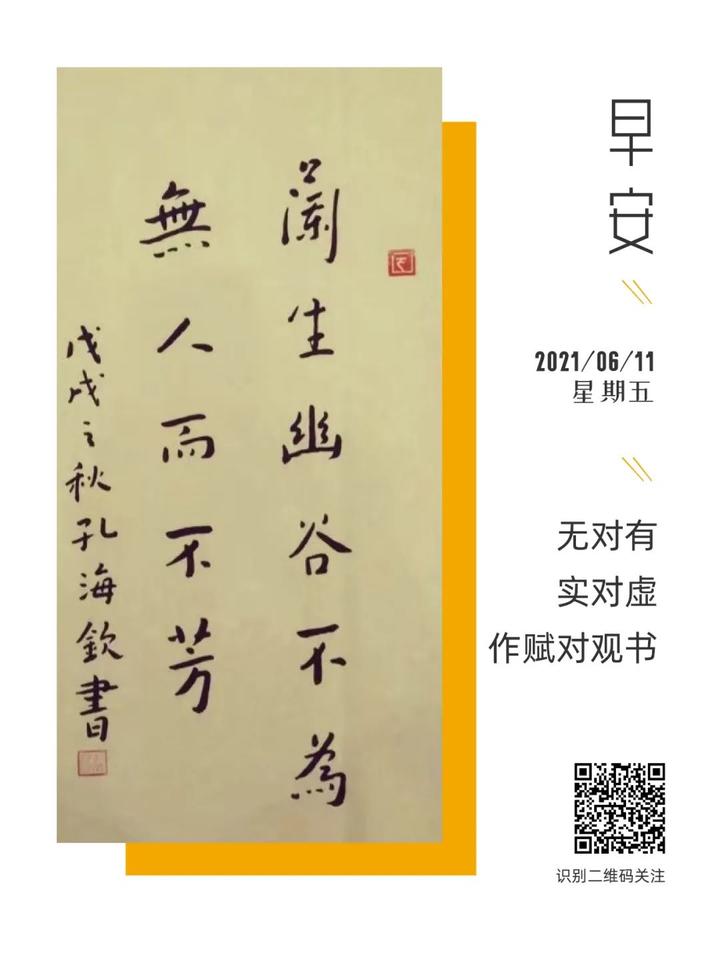 蘭生幽谷不為
無人而不芳
戊戌之秋孔海欽書
早安
2021/06/11
星期五
无对有
实对虚
作赋对观书
识别二维码关注